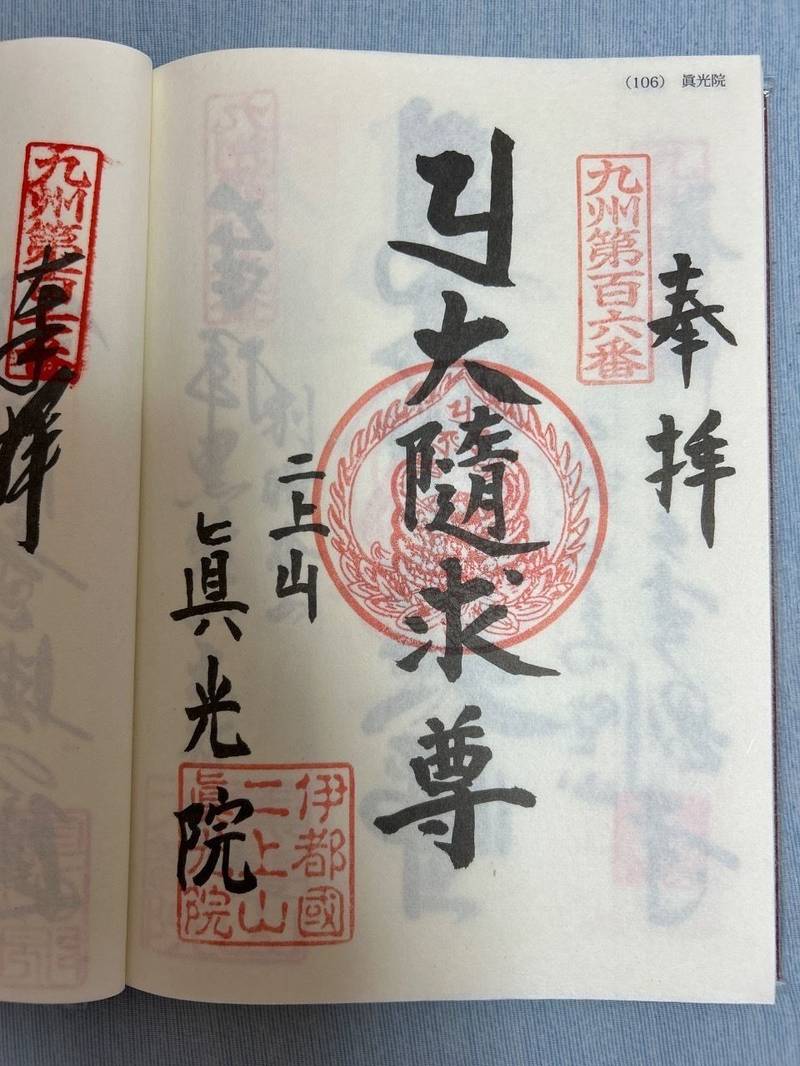 (106) 眞光院
奉拝
九州第百六番
大隨求尊
二上山
眞光院
伊都國
二上山
眞光院
九州第百
奉拝